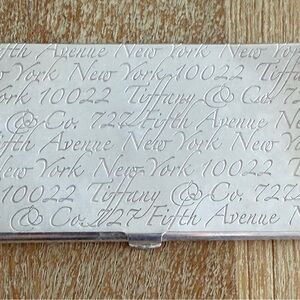 Fifth Avenue New York
York New York 10022 Tiff
ork 10022 Tiffany & Co.
& Co. 727 Fifth Avenue
ifth Avenue New York N
New York New York 1002
10022 Tiffany & Co. 727
& Co. 727 Fifth Avenue N